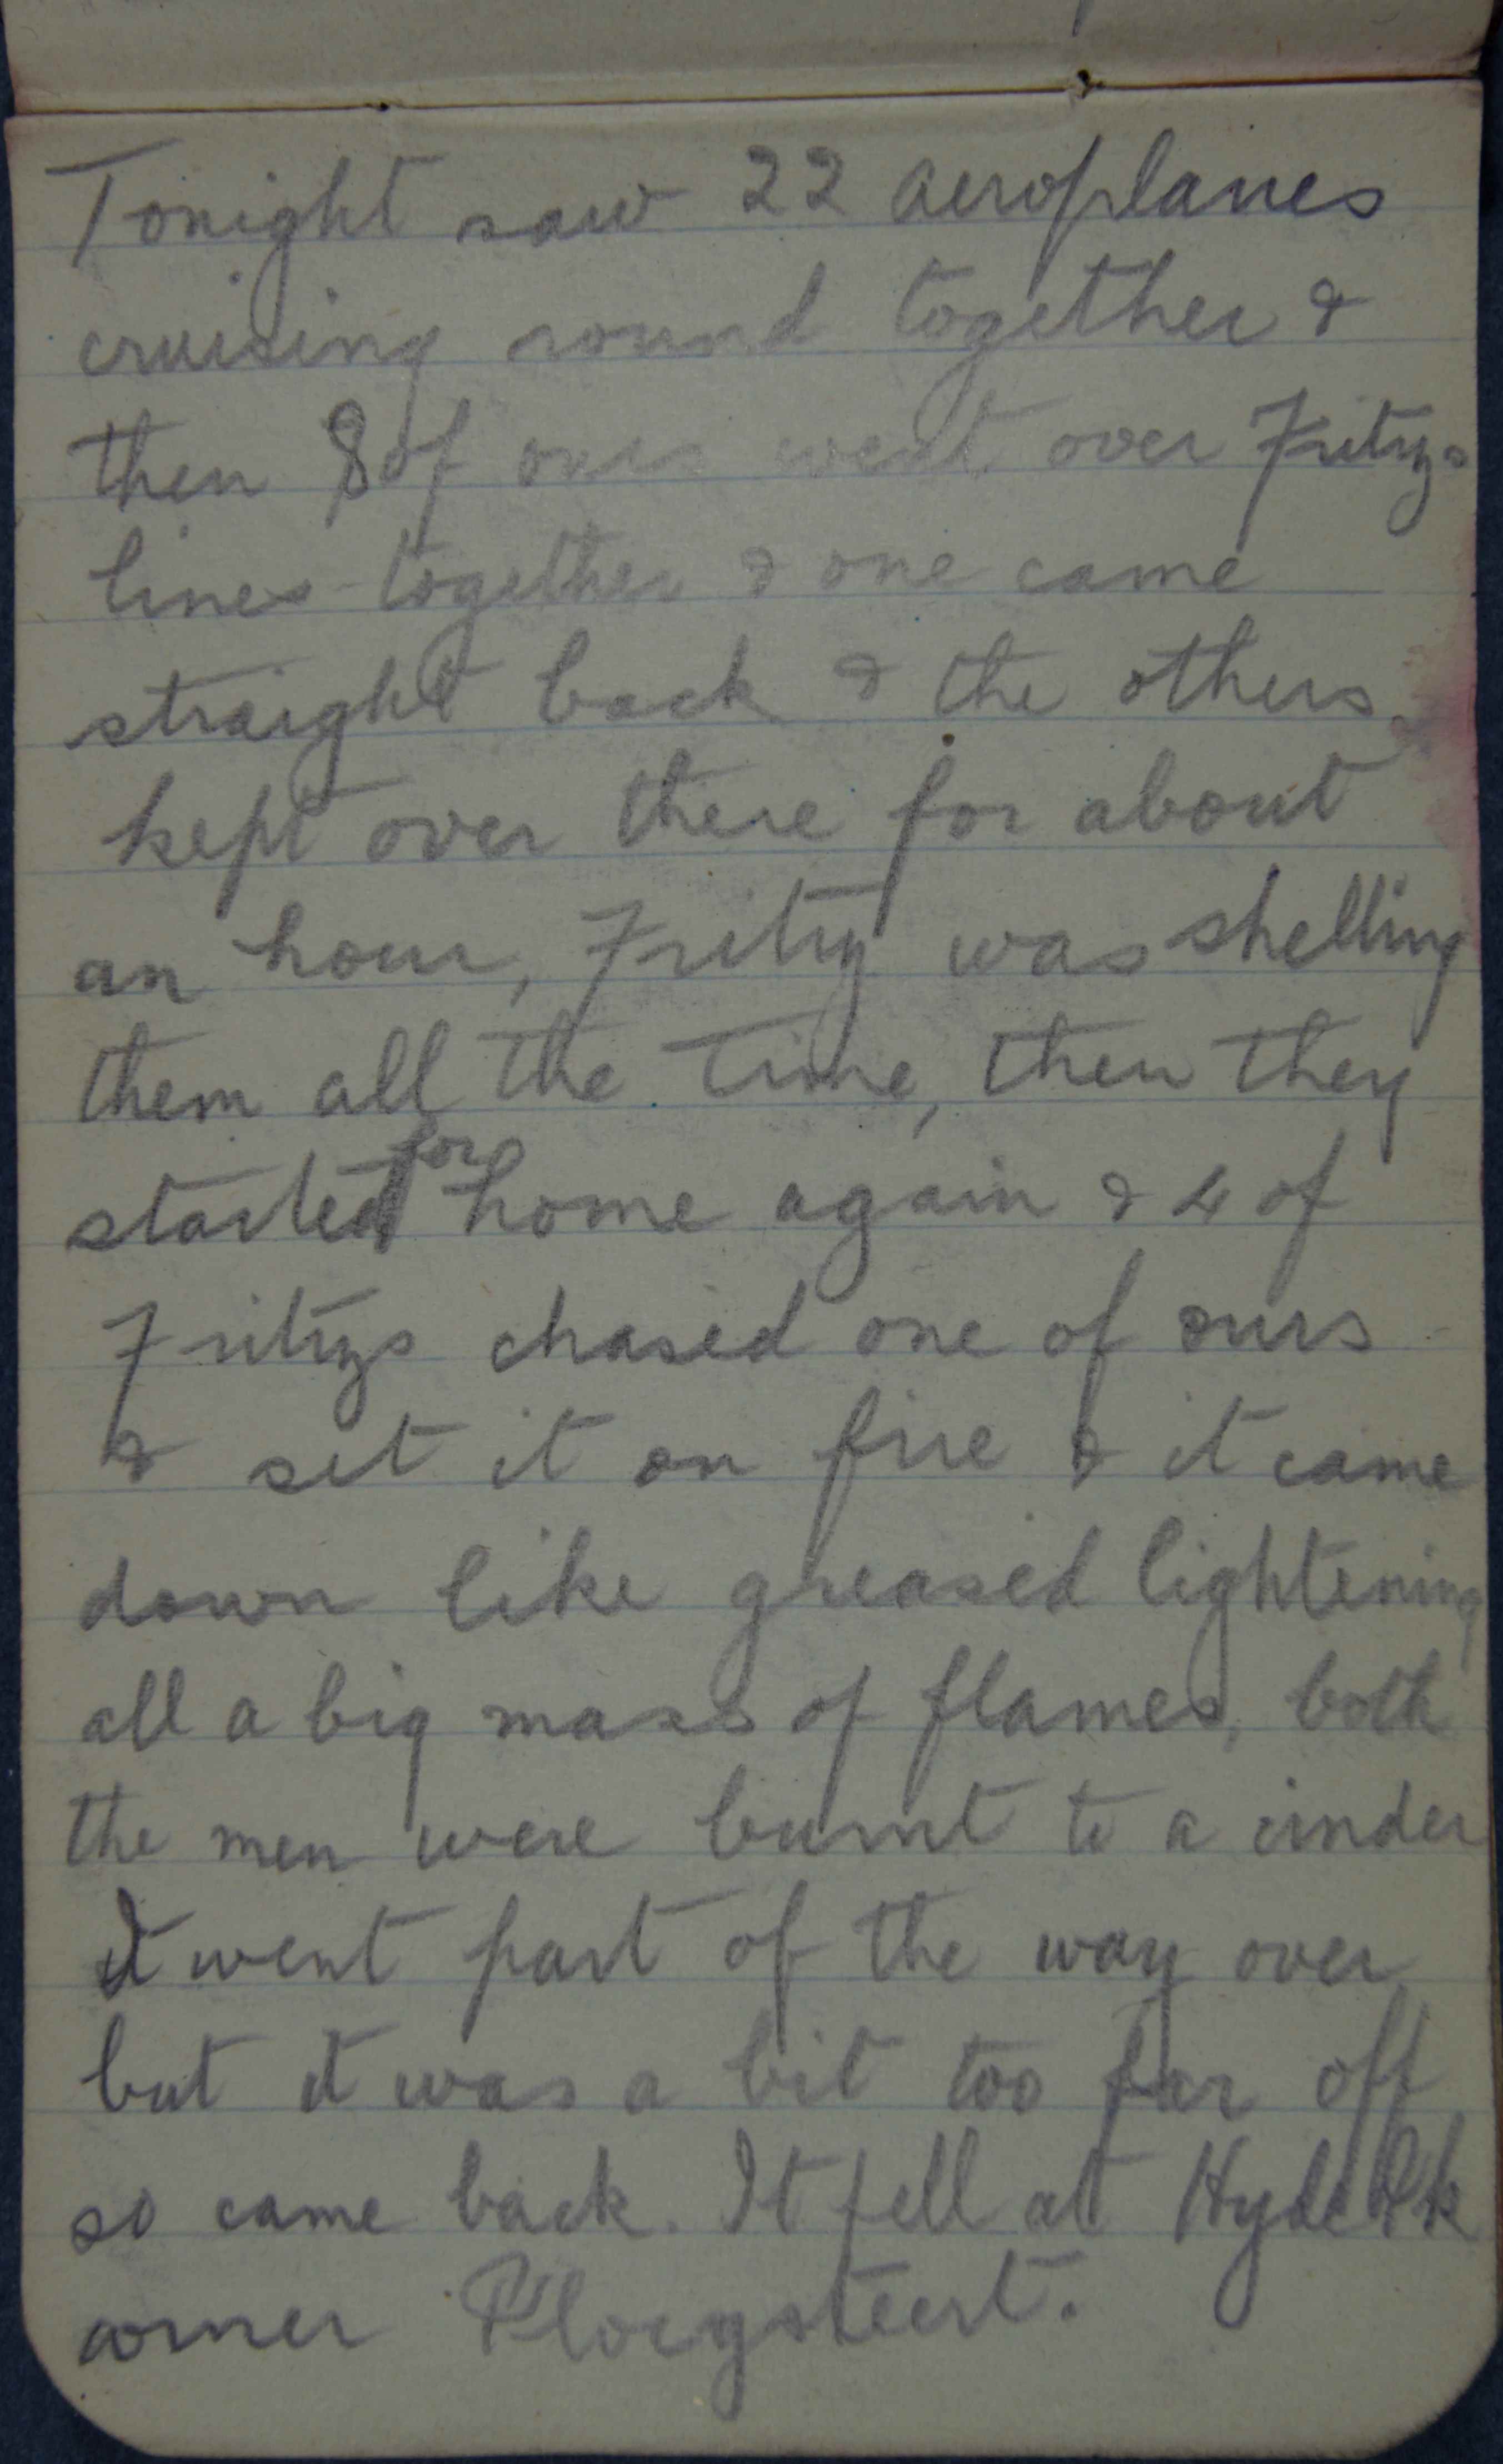 Tonight saw 22 aeroplanes
cruising round together &
then 8 of ours went over Fritzs
lines together & one came
straight back & the others
kept over there for about
an hour, Fritz was shelling
them all the time, then they
started for home again & 4 of
Fritzs chased one of ours
& set it on fire & it came
down like greased lightening
all a big mass of flames, both
the men were burnt to a cinder
It went part of the way over
but it was a bit too far off
so came back. It fell at Hyde Pk
corner Ploegsteert.